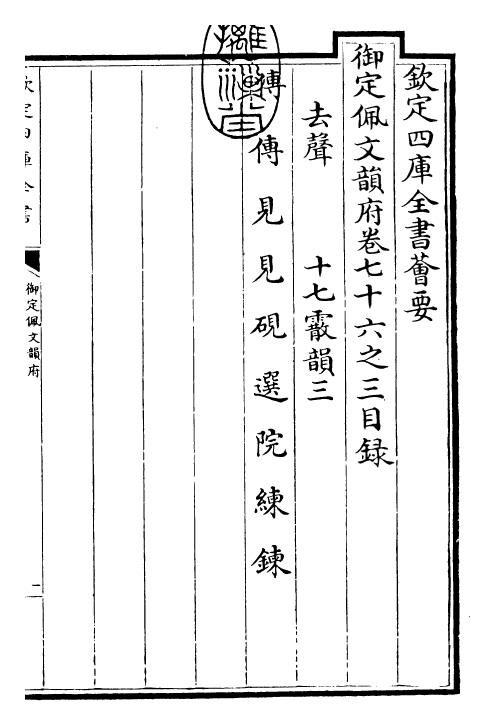 欽定四庫全書薈要
御定佩文韻府卷七十六之三目録
去聲 十七霰韻三
傳 傳 見 見 硯 選 院 練 鍊
欽定四庫全書
御定佩文韻府